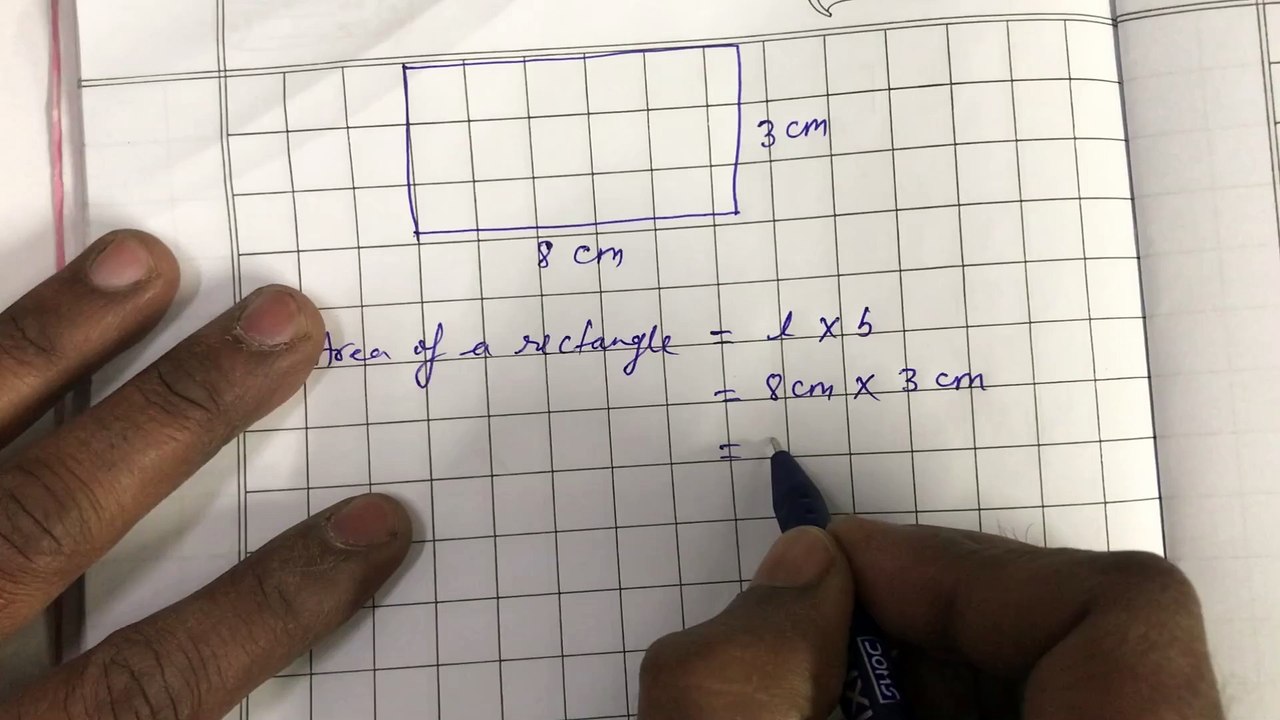 3 cm
8 cm
Area of a rectangle = l x b
= 8cm x 3 cm
=